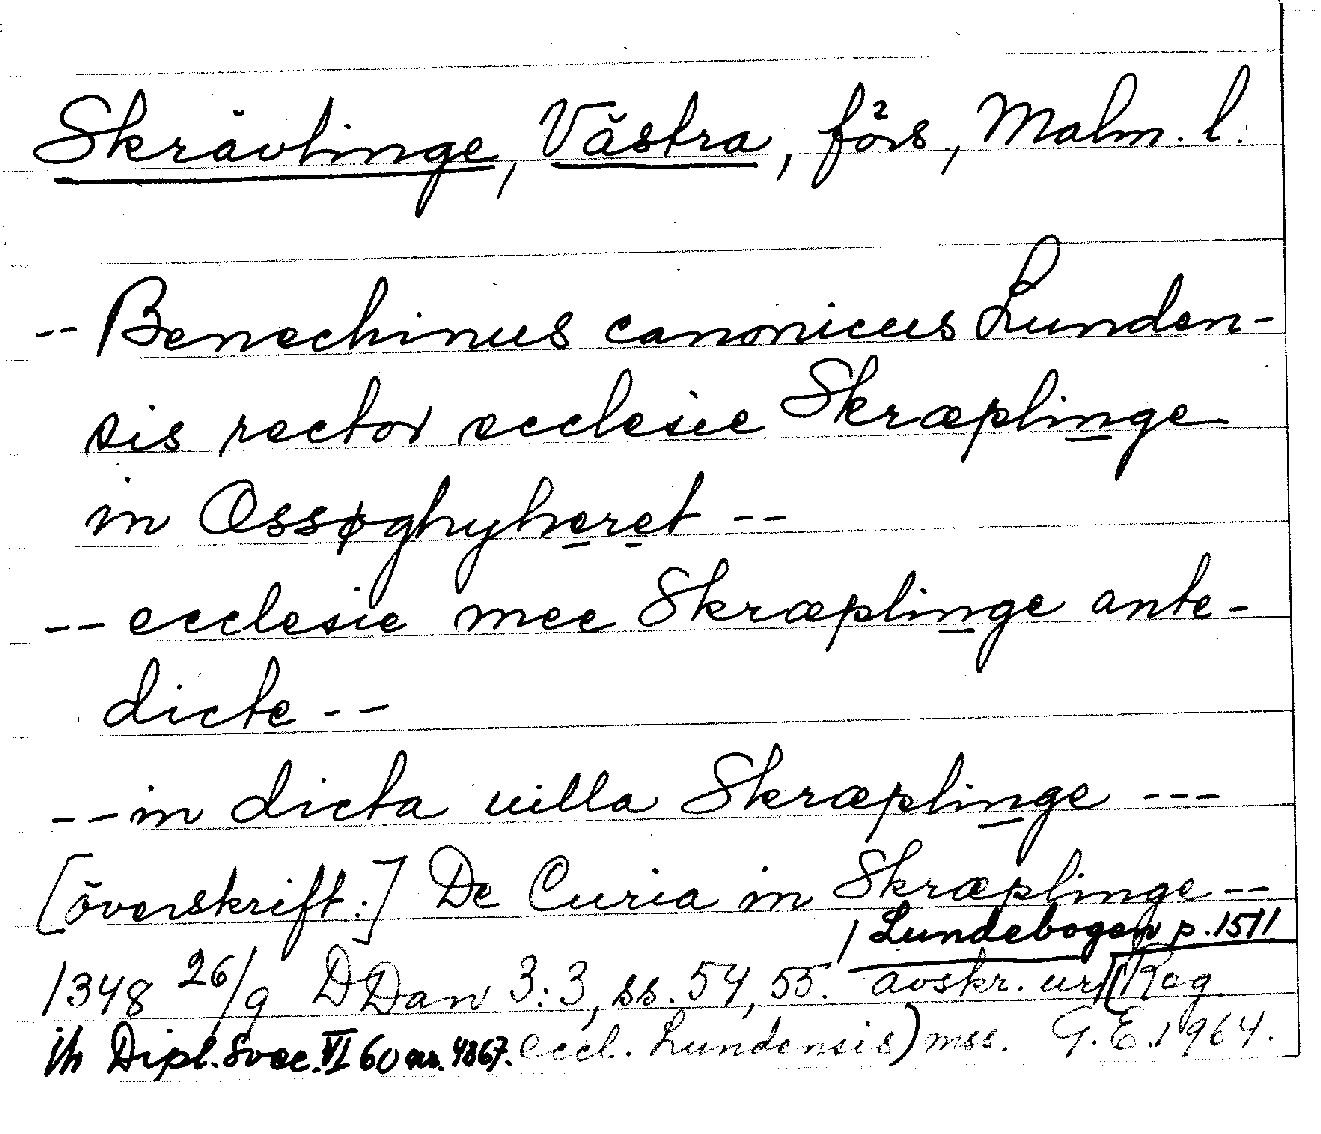 Skrävlinge, Västra, förs, Malm. l.
-- Benechinus canonicus Lunden-
sis rector ecclesie Skræplinge
in Ossøghyheret --
-- ecclesie mee Skræplinge ante-
dicte --
-- in dicta uilla Skræplinge ---
[överskrift:] De Curia in Skræplinge --
Lundebogen p. 151
1348 26/9 DDan 3:3, ss. 54, 55. avskr. ur (Reg
Dipl. Svec. VI 60 nr. 4367. eccl. Lundensis) msc. G.E. 1964.